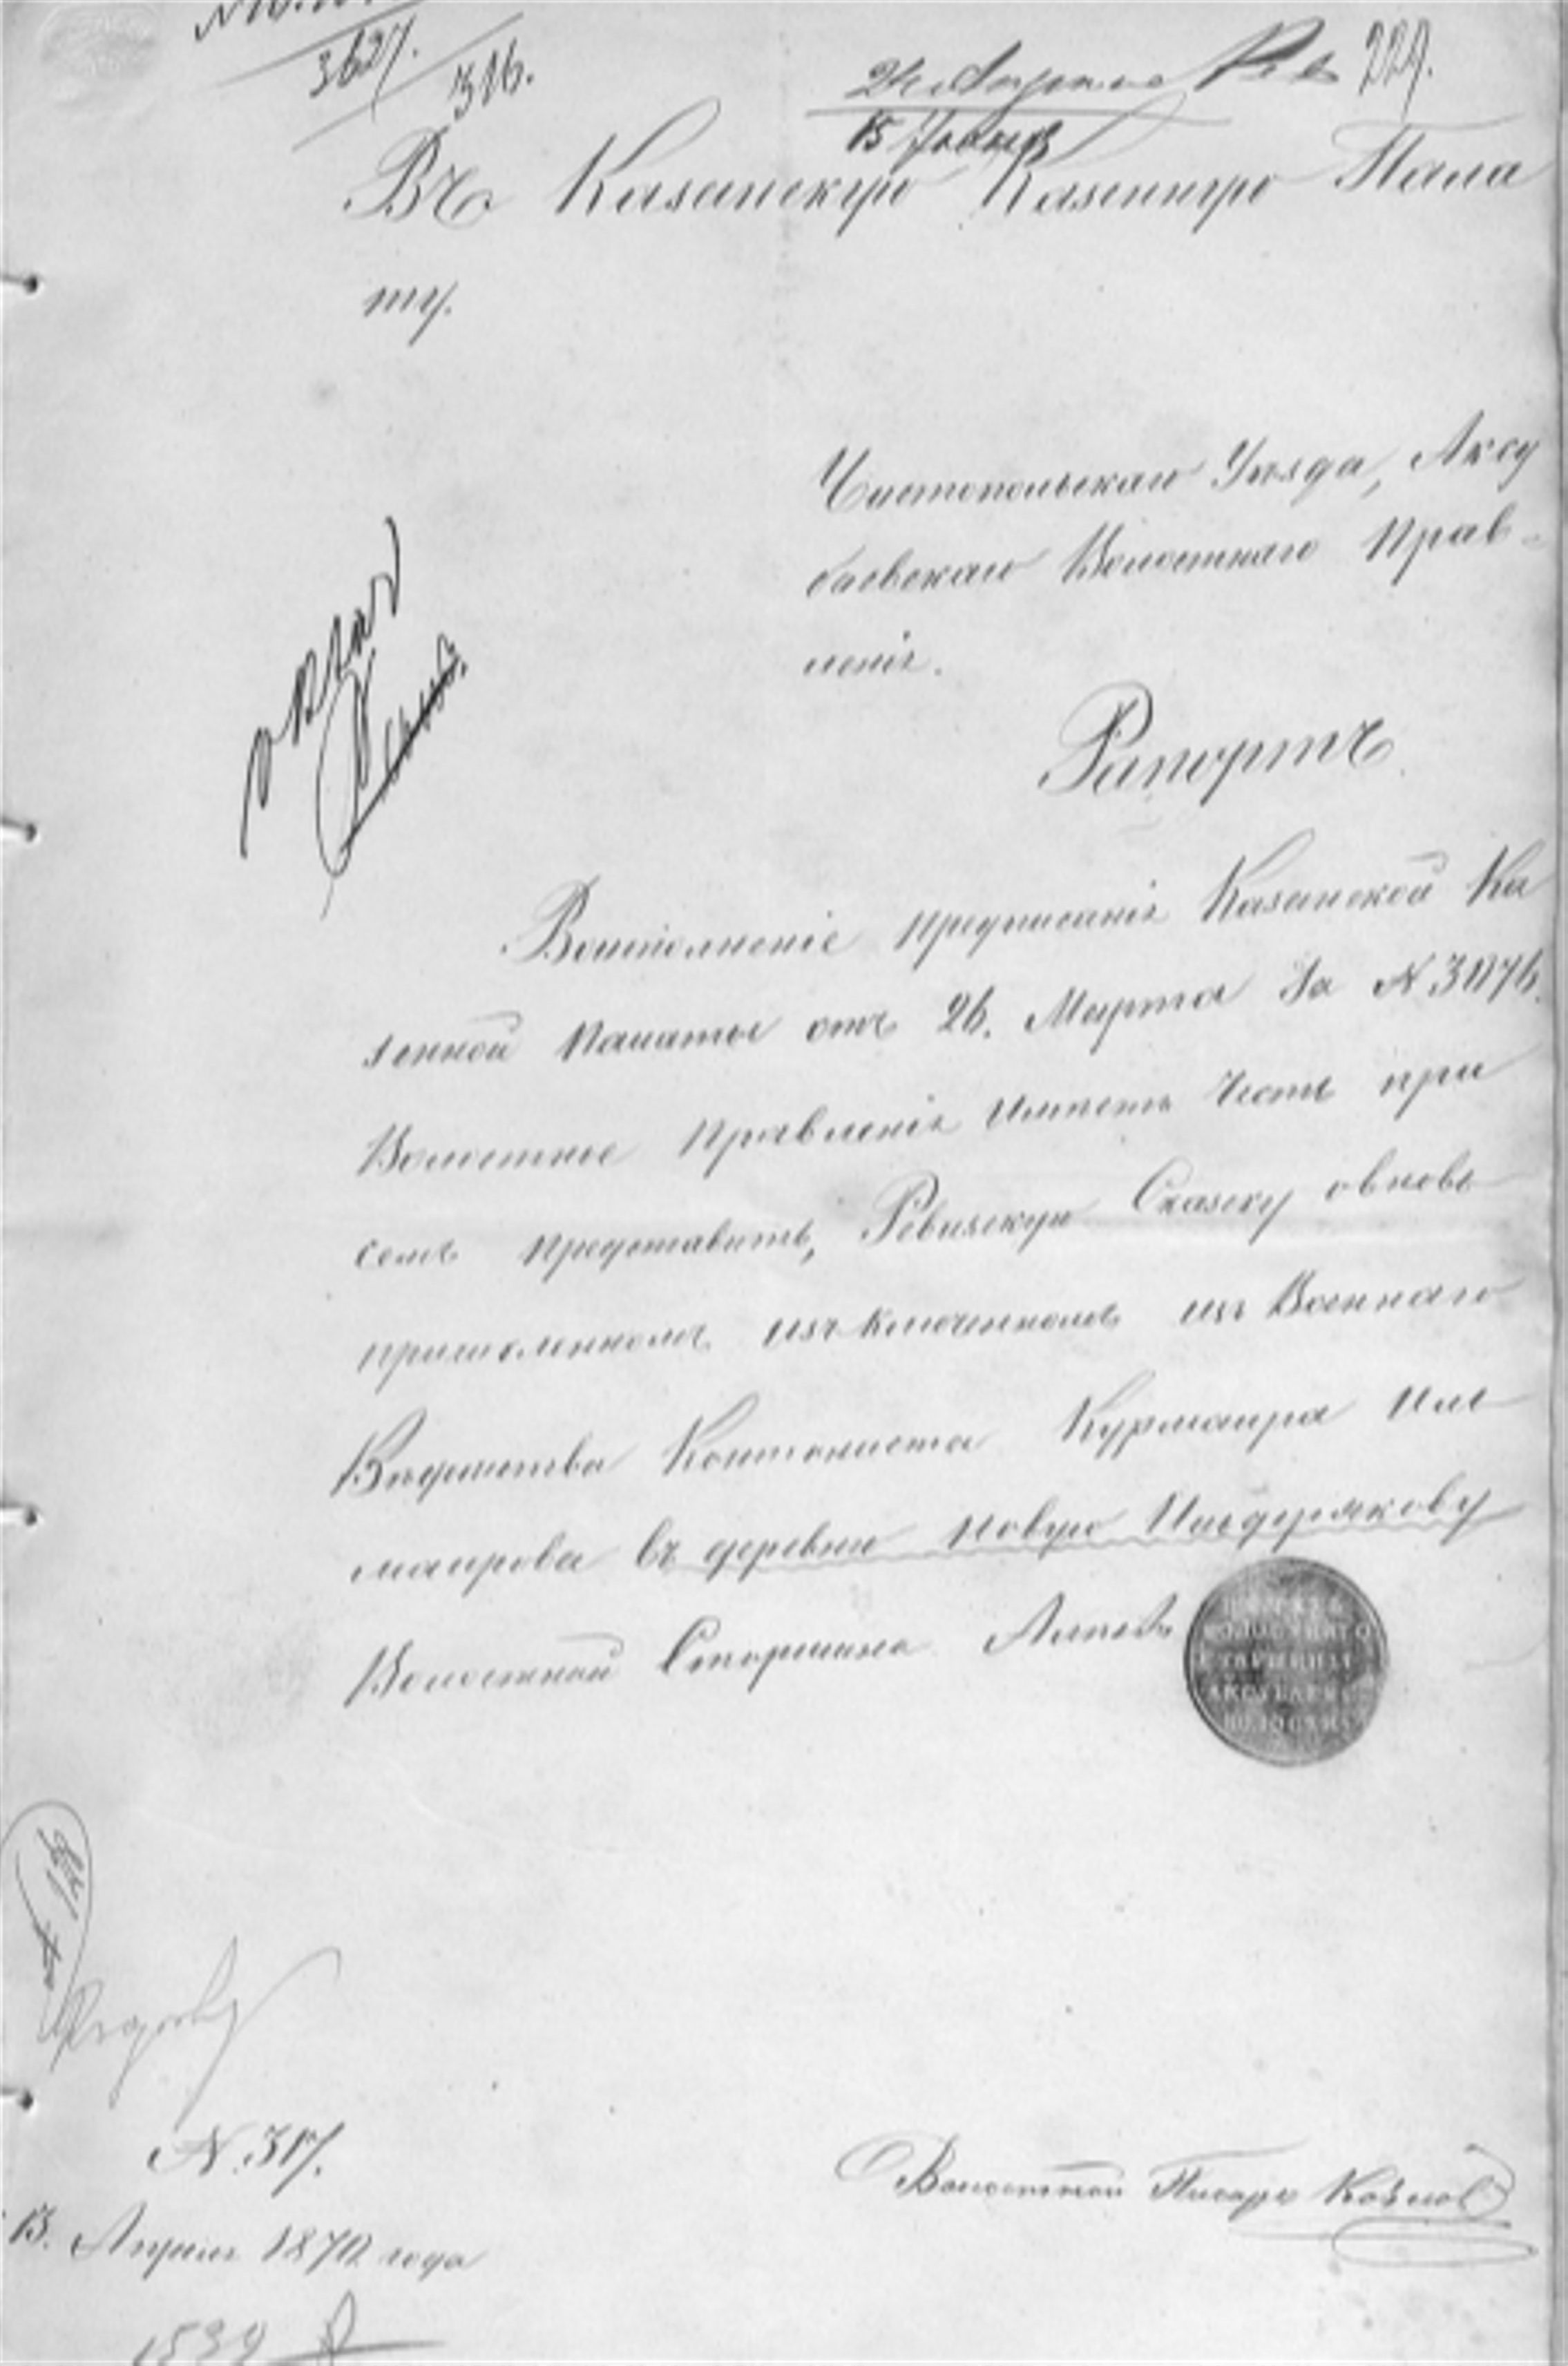 3627.
316.
24 Апреля 229.
15
Въ Казанскую Казенную Пала
ту.
Чистопольскаго Уѣзда, Аксу
баевскаго Волостнаго Прав-
ленія.
Рапортъ
Воисполненіе предписанія Казанской Ка
зенной Палаты отъ 26. Марта за N
Волостное Правленія Имѣетъ Честь при
семъ представить, Ревизскую Сказку овновь
причисленномъ изъключенномъ изъ Военнаго
Вѣдомства Контониста Курмаира Иль
маирова въ деревни Новую
Волостной Старшина
ПЕЧАТЬ
ВОЛОСТНАГО
СТАРШИНЫ
АКСУБАЕВС
ВОЛОСТИ
N. 317.
13. Апреля 1870 года
Волостной Писарь Козлов
1539